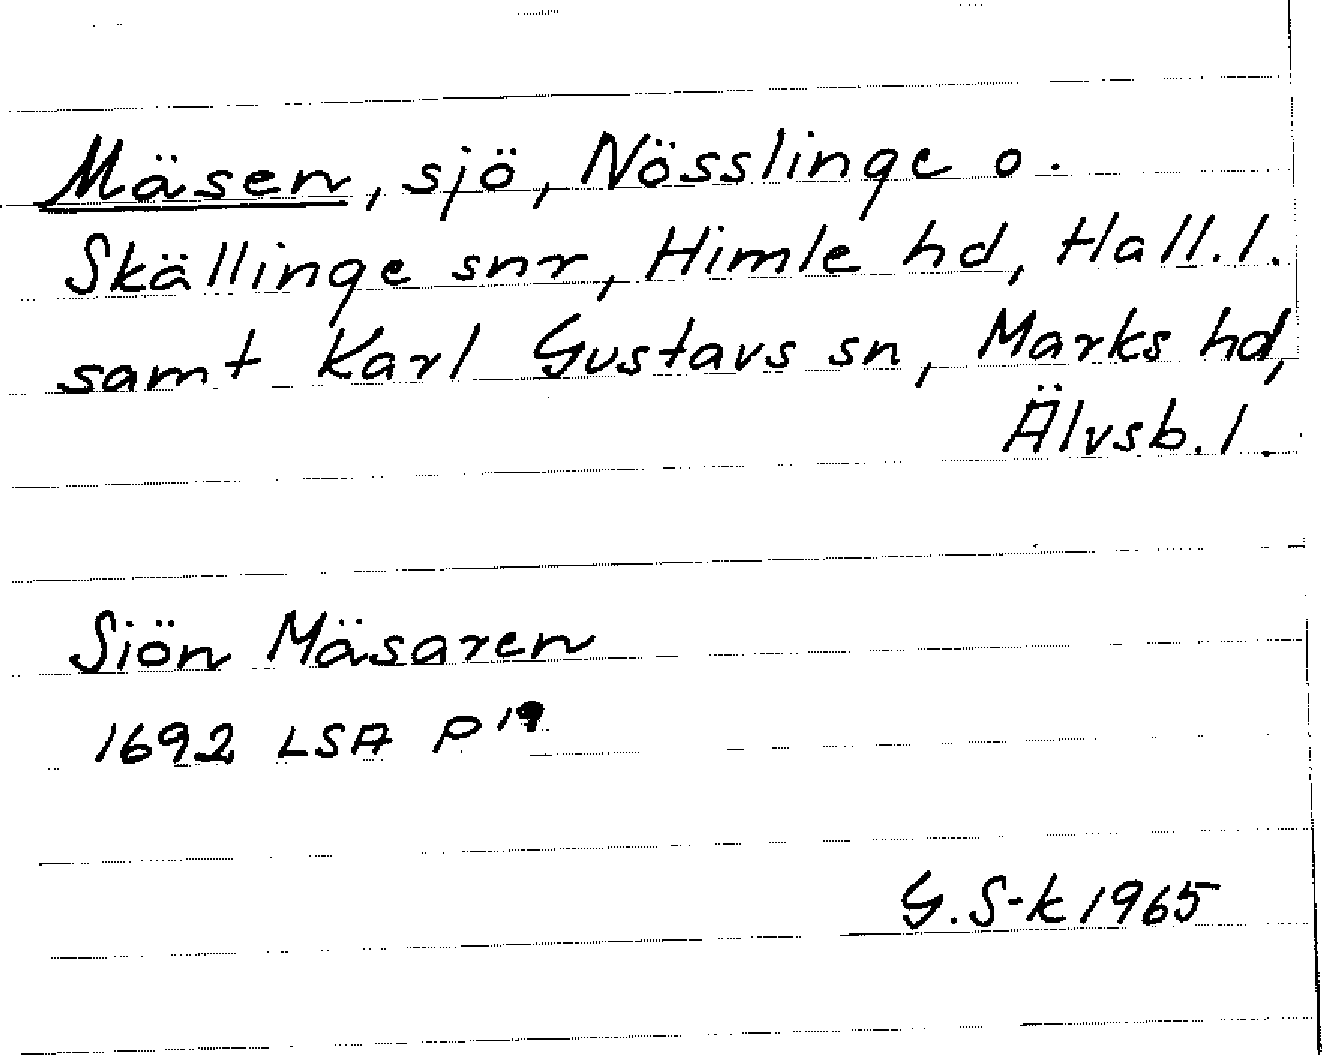 Mäsen, sjö, Nösslinge o.
Skällinge snr, Himle hd, Hall. l.
samt Karl Gustavs sn, Marks hd,
Älvsb. l.
Siön Mäsaren
1692 LSA P 19
G. S-k 1965